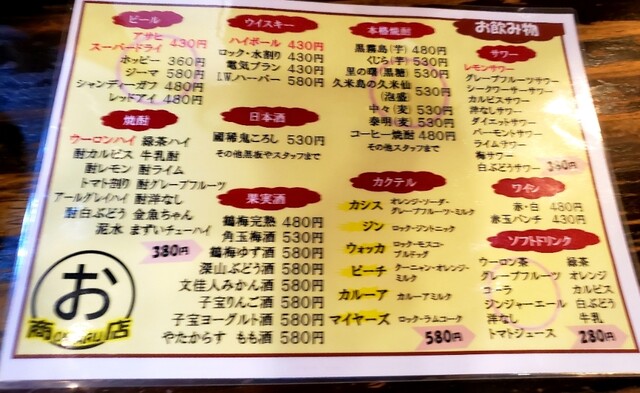 お飲み物
ビール
アサヒ
スーパードライ 430円
ホッピー 360円
ジーマ 580円
シャンディーガフ 480円
レッドアイ 480円
焼酎
ウーロンハイ 緑茶ハイ
酎カルピス 牛乳酎
酎レモン 酎ライム
トマト割り 酎グレープフルーツ
アールグレイハイ 酎洋なし
酎白ぶどう 金魚ちゃん
泥水 まずいチューハイ
380円
お
商 店
ウイスキー
ハイボール 430円
ロック・水割り 430円
電気ブラン 430円
I.W.ハーパー 580円
日本酒
國稀鬼ころし 530円
その他黒板やスタッフまで
果実酒
鶴梅完熟 480円
角玉梅酒 530円
鶴梅ゆず酒 580円
深山ぶどう酒 580円
文佳人みかん酒 580円
子宝りんご酒 580円
子宝ヨーグルト酒 580円
やたからす もも酒 580円
本格焼酎
黒霧島(芋) 480円
くじら(芋) 530円
里の曙(黒糖) 530円
久米島の久米仙
(泡盛) 530円
中々(麦) 530円
泰明(麦) 530円
コーヒー焼酎 480円
その他スタッフまで
カクテル
カシス オレンジ・ソーダ・
グレープフルーツ・ミルク
ジン ロック・ジントニック
ウォッカ ロック・モスコー
ブルドッグ
ピーチ ターニャン・オレンジ・
ミルク
カルーア カルーアミルク
マイヤーズ ロック・ラムコーク
580円
サワー
レモンサワー
グレープフルーツサワー
シークワーサーサワー
カルピスサワー
洋なしサワー
ダイエットサワー
バーモントサワー
ライムサワー
梅サワー
白ぶどうサワー
ワイン
赤・白 480円
赤玉パンチ 430円
ソフトドリンク
ウーロン茶 緑茶
グレープフルーツ オレンジ
コーラ カルピス
ジンジャーエール 白ぶどう
洋なし 牛乳
トマトジュース 280円